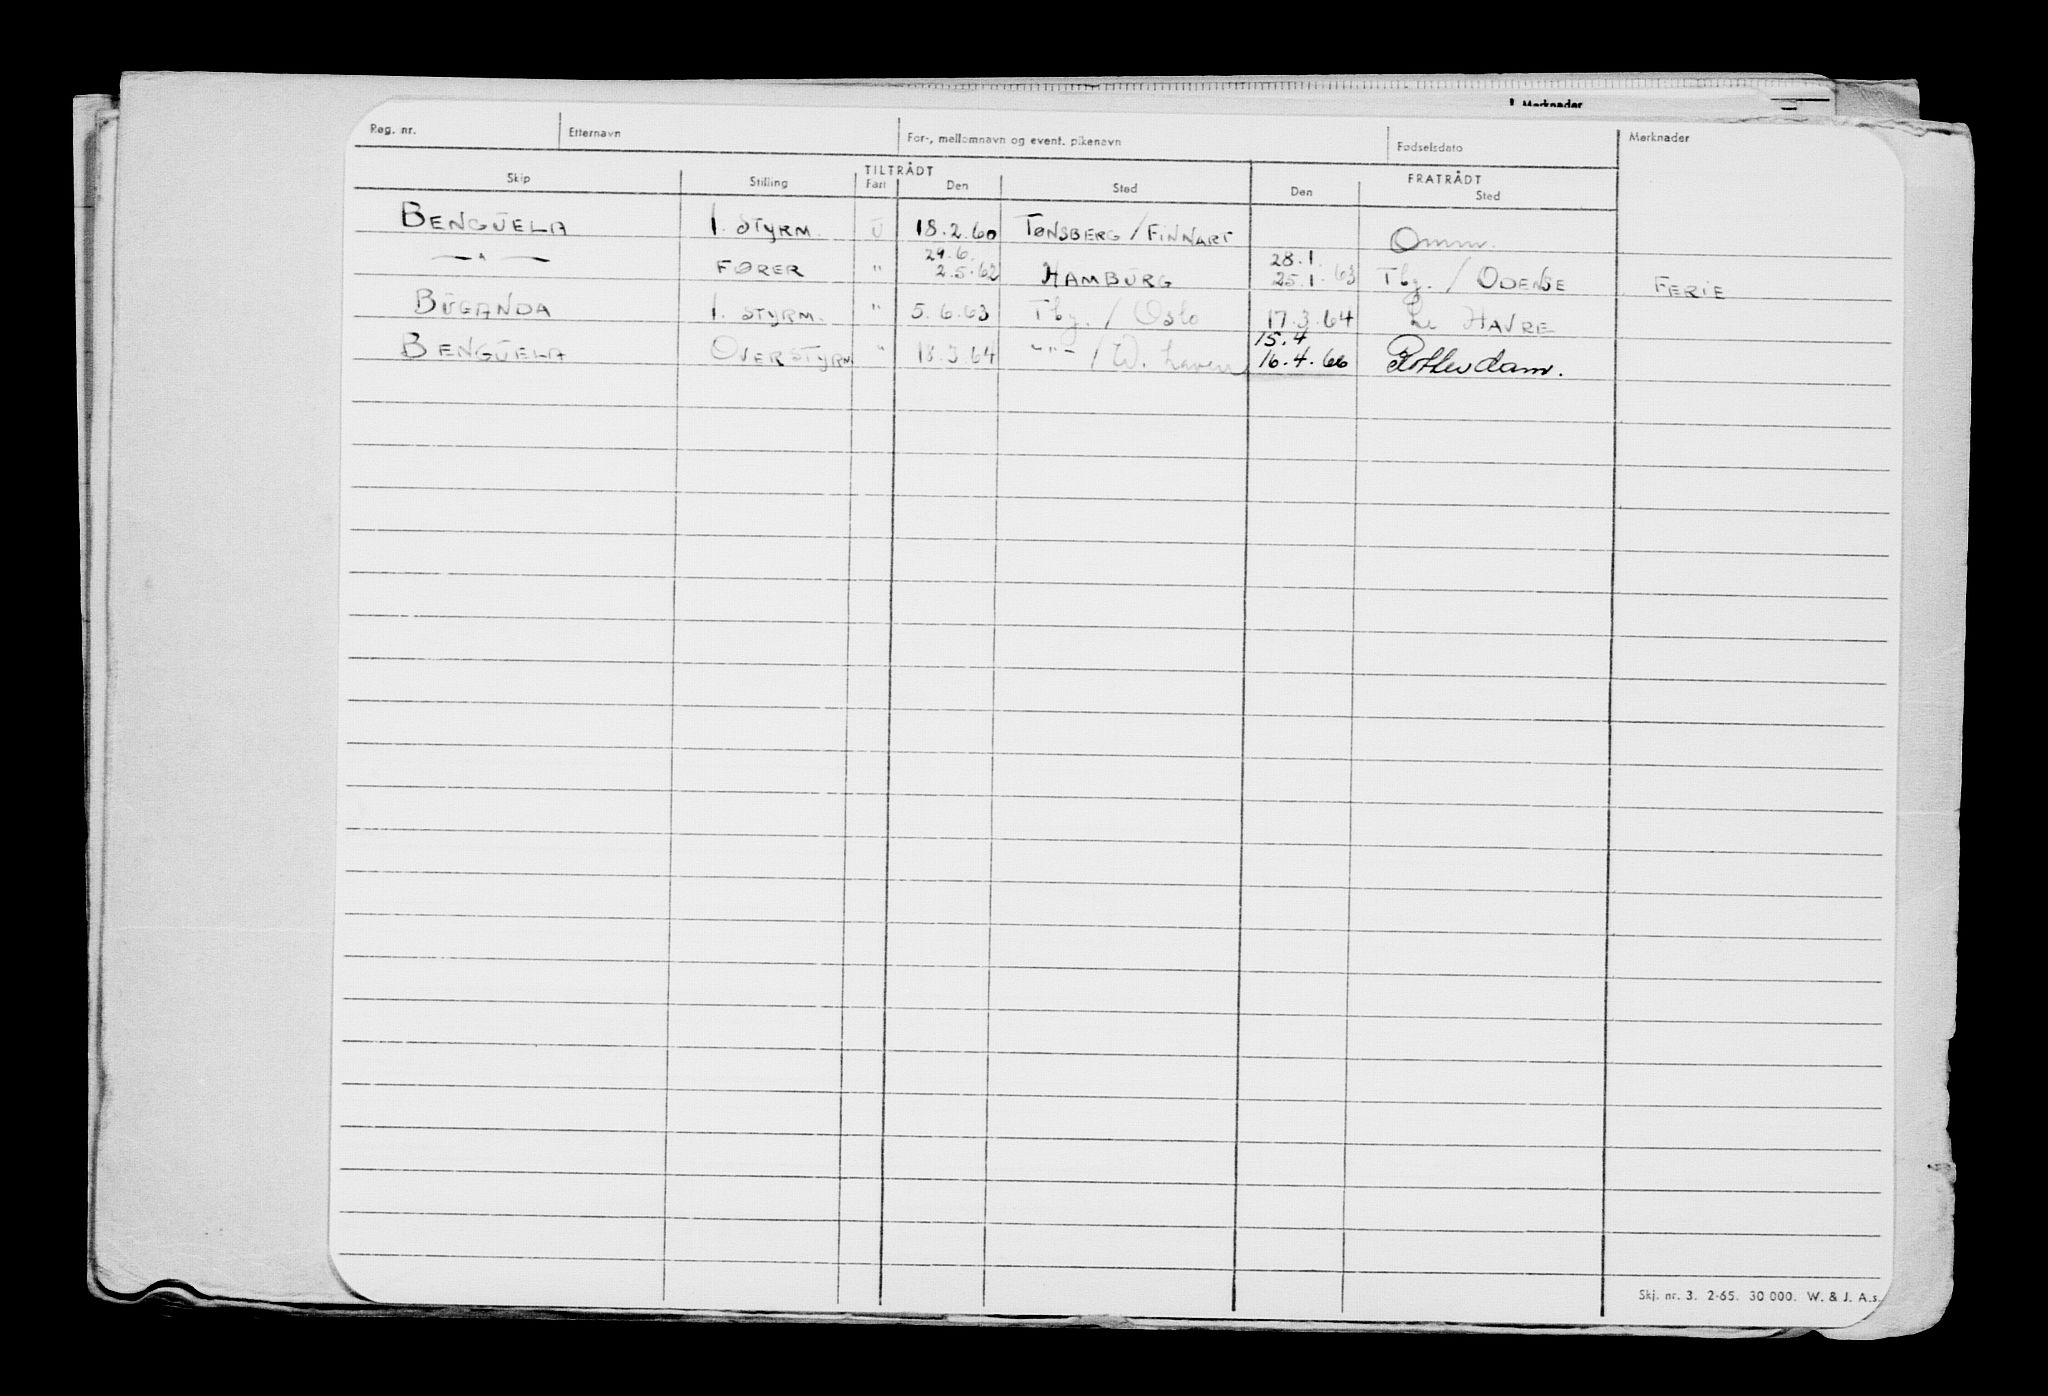 Merknader
Reg. nr. Etternavn For-, mellomnavn og event. pikenavn Fødselsdato Merknader
TILTRÅDT FRATRÅDT
Skip Stilling Fart Den Sted Den Sted
BENGUELA 1. STYRM. U 18.2.60 TØNSBERG / FINNART Omm.
29.6. 28.1.
—"— FØRER " 2.5.62 HAMBURG 25.1.63 Tbg. / ODENSE FERIE
BUGANDA 1. STYRM. " 5.6.63 Tbg. / Oslo 17.3.64 Le HAVRE
15.4
BENGUELA OVERSTYRM " 18.3.64 -"- / W. haven 16.4.66 Rotterdam.
Skj. nr. 3. 2-65. 30 000. W. & J. A.s.